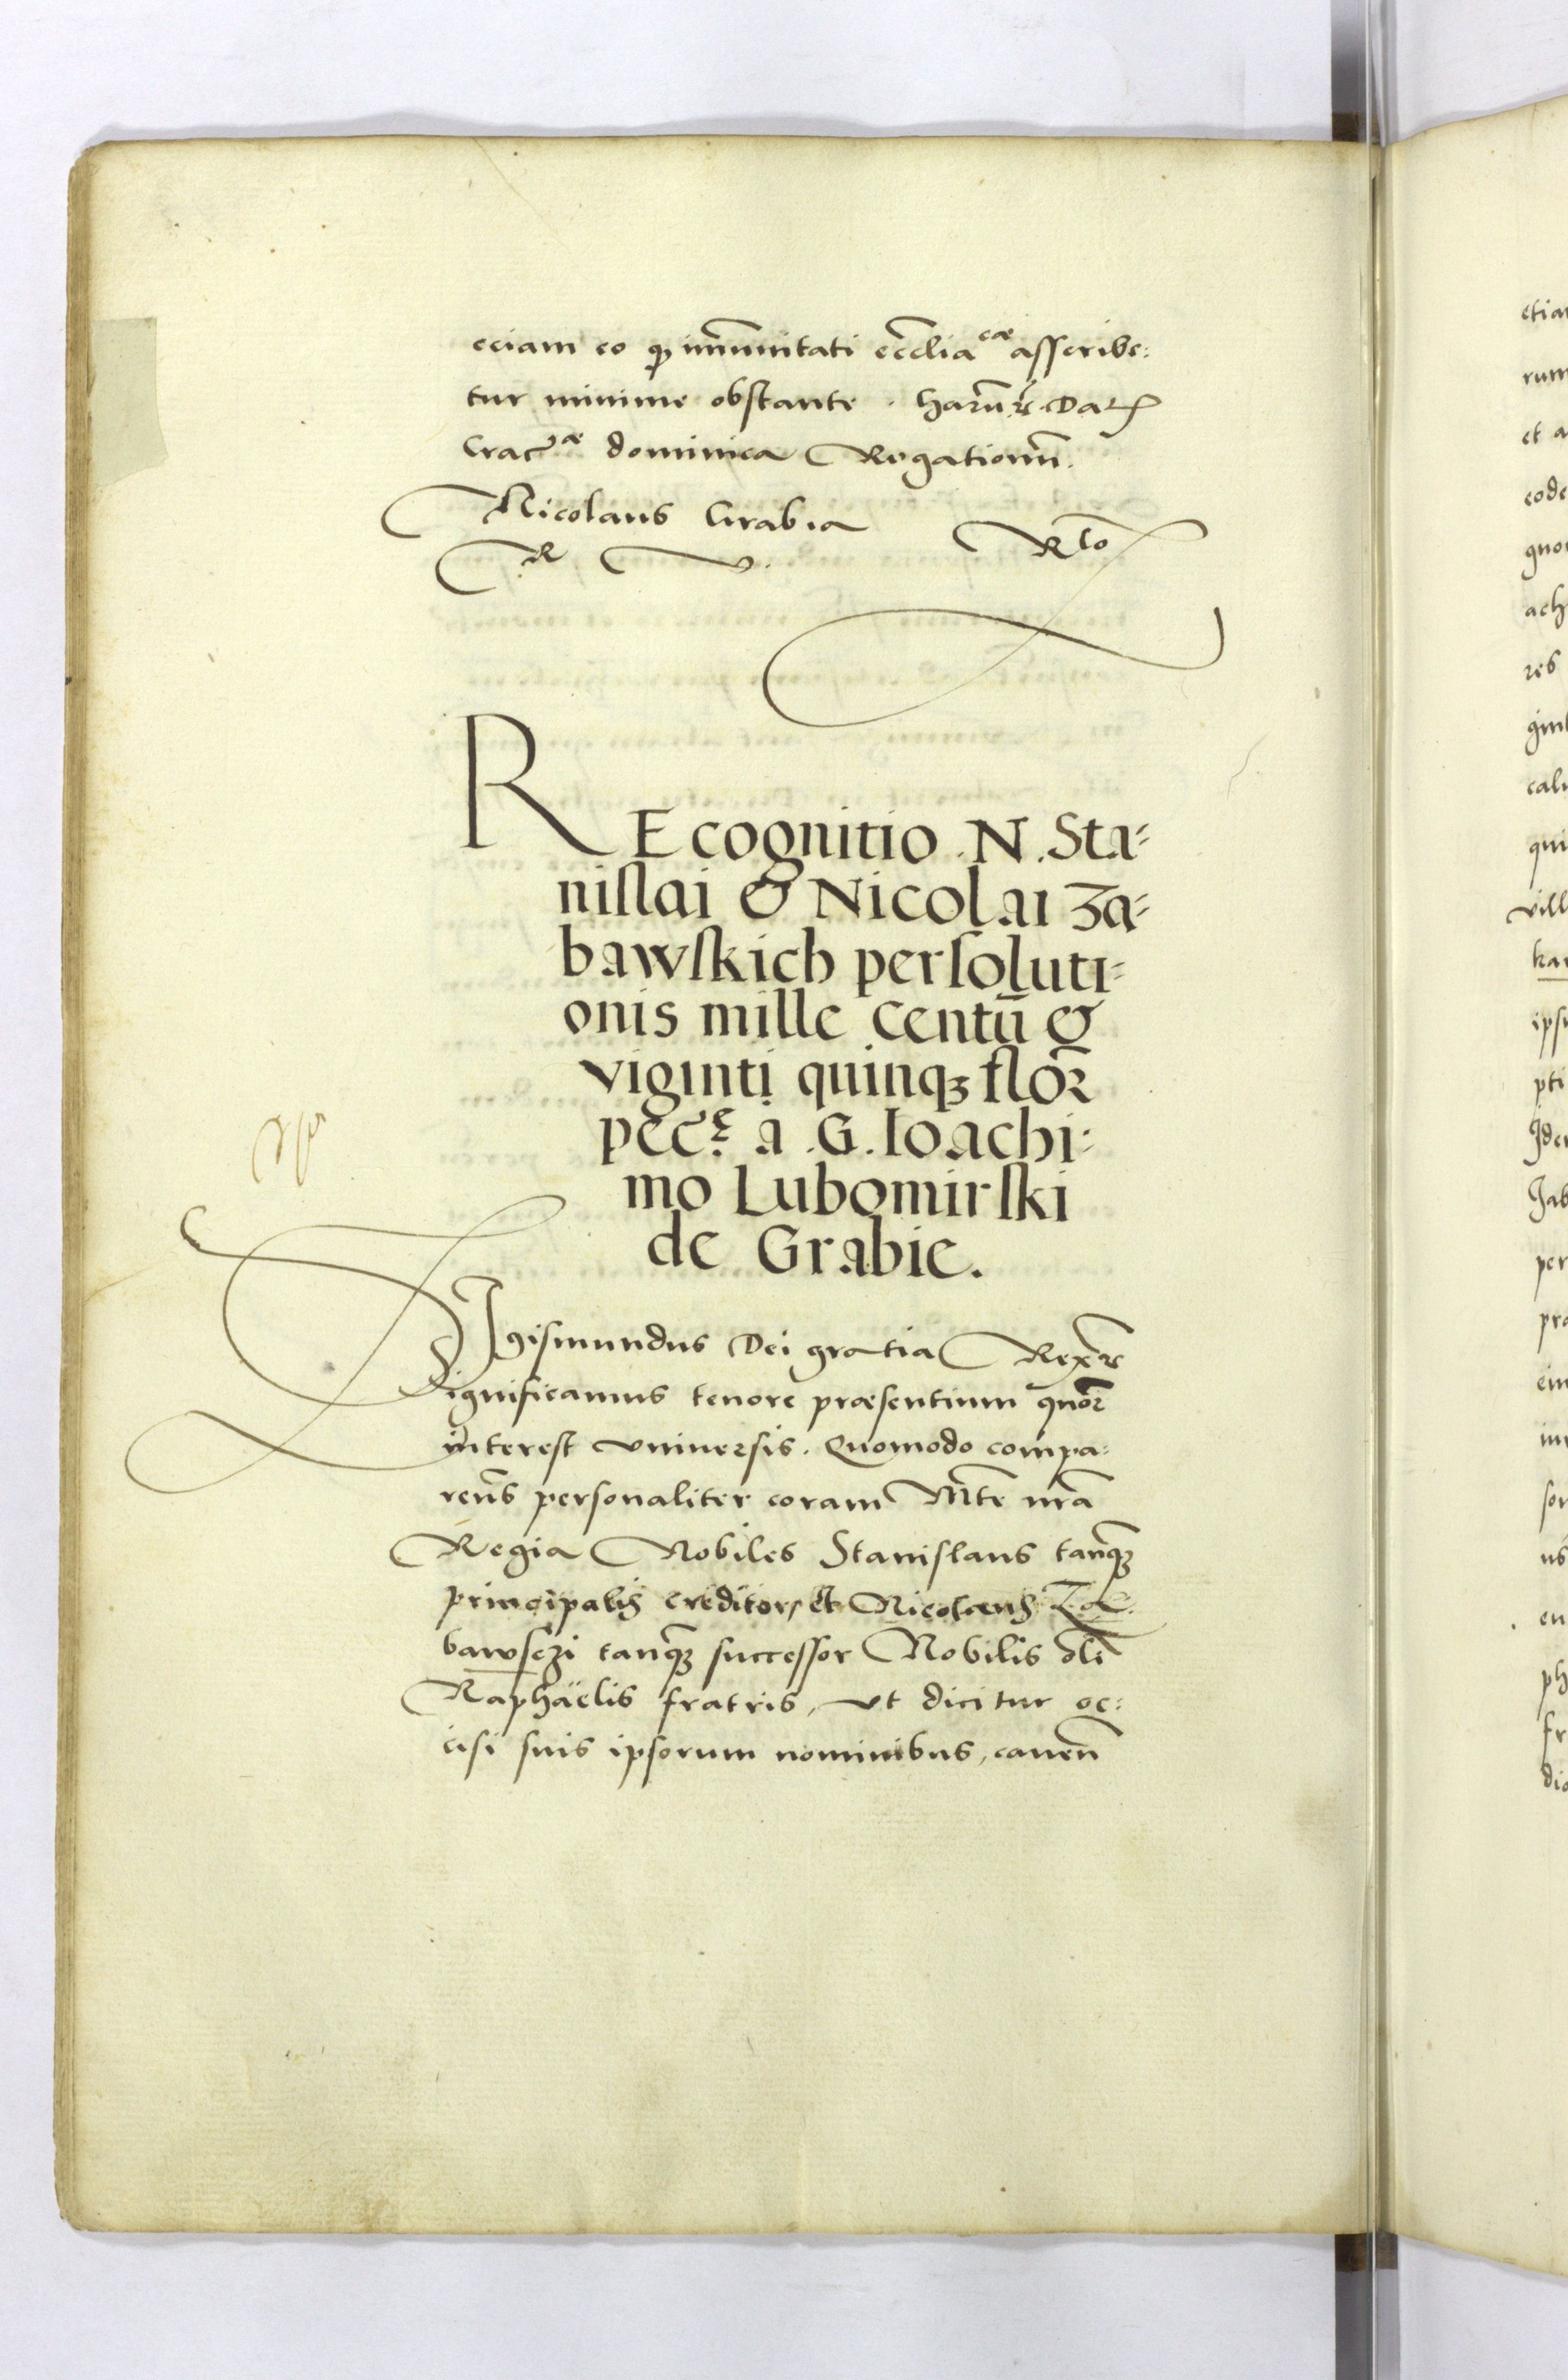 eciam eo ꝙ im̄unitati eccl̄ia cae asseribe:
tur minime obstante. harū r̄ Dat
Crac ae dominica Rogationū.
Nicolaus Grabia Rto
R V.
REcognitio .N. Sta⸗
nislai & Nicolai Za⸗
bawskich persoluti⸗
onis mille centū &
viginti quinqꝫ flor̄
pecc̄ę a .G. Ioachi⸗
mo Lubomirski
de Grabie.
Sigismundus Dei gratia Rex r̄
Significamus tenore praesentium quor̄
interest vniuersis. Quomodo compa:
ren̄s personaliter coram Mte nr̄a
Regia Nobiles Stanislaus tanqꝫ
principalis creditor, et Nicolaus Za:
bawsczi tanqꝫ successor Nobilis oli̅
Raphaëlis fratris, vt dicitur oc:
cisi suis ipsorum nominibus, cauen̄